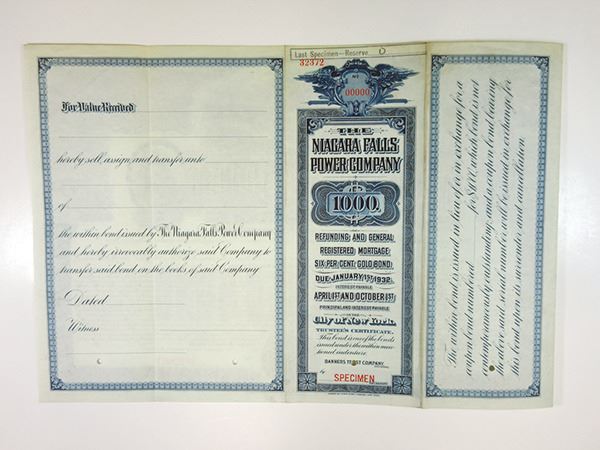 For Value Received
hereby sell, assign, and transfer unto
of
the within bond issued by The Niagara Falls Power Company
and hereby irrevocably authorize said Company to
transfer said bond on the books of said Company
Dated
Witness
Last Specimen—Reserve
32372
No
00000
THE
NIAGARA FALLS
POWER COMPANY
1000.
REFUNDING AND GENERAL
REGISTERED MORTGAGE
SIX PER CENT. GOLD BOND.
DUE JANUARY 1ST 1932.
INTEREST PAYABLE
APRIL 1ST AND OCTOBER 1ST
PRINCIPAL AND INTEREST PAYABLE
IN THE
City of New York.
TRUSTEE'S CERTIFICATE.
This bond is one of the bonds
issued under the within men-
tioned indenture.
BANKERS TRUST COMPANY
by
SPECIMEN
The within bond is issued in lieu of or in exchange for a
coupon bond numbered for $1000, which bond is not
contemporaneously outstanding, and a coupon bond bearing
the same said serial number will be issued in exchange for
this bond upon its surrender and cancellation.